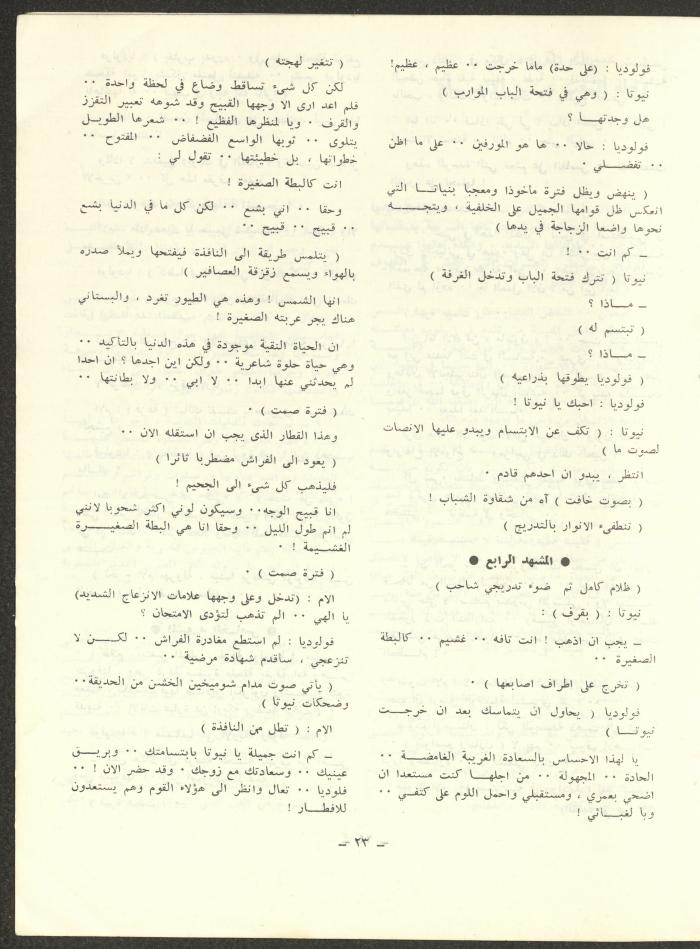 فولوديا : (على حدة) ماما خرجت ٠٠ عظيم ، عظيم!
نيوتا : ( وهي في فتحة الباب الموارب )
هل وجدتهـــا ؟
فولوديا : حالا ٠٠ ها هو المورفين ٠٠ على ما اظن
٠٠ تفضـــلي ٠
( ينهض ويظل فترة مأخوذا ومعجبا بنيوتـــا التي
انعكس ظل قوامها الجميل على الخلفية ، ويتجـــــه
نحوها واضعا الزجاجة في يدها )
ـ كم انت ٠٠ !
نيوتا ( تترك فتحة الباب وتدخل الغرفة )
ـ مـــاذا ؟
( تبتسم له )
ـ مـــاذا ؟
( فولوديا يطوقها بذراعيه )
فولوديا : احبك يا نيوتا !
نيوتا : ( تكف عن الابتسام ويبدو عليها الانصات
لصوت ما )
انتظر ، يبدو ان احدهم قادم ٠
( بصوت خافت ) آه من شقاوة الشباب !
( تنطفىء الانوار بالتدريج )
● المشهد الرابع ●
( ظلام كامل ثم ضوء تدريجي شاحب )
نيوتا : ( بقرف ) :
ـ يجب ان اذهب ! انت تافه ٠٠ غشيم ٠٠ كالبطة
الصغيرة ٠٠
( تخرج على اطراف اصابعها ) ٠
فولوديا ( يحاول ان يتماسك بعد ان خرجـــت
نيوتـــا )
يا لهذا الاحساس بالسعادة الغريبة الغامضـــة ٠٠
الحادة ٠٠ المجهولة ٠٠ من اجلهـــا كنت مستعدا ان
اضحي بعمري ، ومستقبلي واحمل اللوم على كتفـــي ٠٠
ويا لغبـــائي !
( تتغير لهجته )
لكن كل شىء تساقط وضاع في لحظة واحدة ٠٠
فلم اعد ارى الا وجهها القبيح وقد شوهه تعبير التقزز
والقرف ٠ ويا لمنظرها الفظيع ! ٠٠ شعرها الطويـــل
يتلوى ٠٠ ثوبها الواسع الفضفاض ٠٠ المفتوح ٠٠
خطواتها ، بل خطيئتها ٠٠ تقول لي :
انت كالبطة الصغيرة !
وحقا ٠٠ اني بشع ٠٠ لكن كل ما في الدنيا بشع
٠٠ قبيح ٠٠ قبيح ٠٠
( يتلمس طريقة الى النافذة فيفتحها ويملأ صدره
بالهواء ويسمع زقزقة العصافير )
انها الشمس ! وهذه هي الطيور تغرد ، والبستاني
هناك يجر عربته الصغيرة !
ان الحياة النقية موجودة في هذه الدنيا بالتأكيد ٠٠
وهي حياة حلوة شاعرية ٠٠ ولكن اين اجدها ؟ ان احدا
لم يحدثني عنها ابدا ٠٠ لا ابي ٠٠ ولا بطانتها ٠٠
( فترة صمت ) ٠
وهذا القطار الذى يجب ان استقله الان ٠٠
( يعود الى الفراش مضطربا ثائرا )
فليذهب كل شىء الى الجحيم !
انا قبيح الوجه٠٠ وسيكون لوني اكثر شحوبا لانني
لم انم طول الليل ٠٠ وحقا انا هي البطة الصغيـــــرة
الغشـــيمة ! ٠
( فترة صمت ) ٠
الام : (تدخل وعلى وجهها علامات الانزعاج الشديد)
يا الهي ٠٠ الم تذهب لتؤدى الامتحان ؟
فولوديا : لم استطع مغادرة الفراش ٠٠ لكـــن لا
تنزعجي ، سأقدم شهادة مرضية ٠٠
( يأتي صوت مدام شوميخين الخشن من الحديقة٠٠
وضحكات نيوتا )
الام : ( تطل من النافذة )
ـ كم انت جميلة يا نيوتا بابتسامتك ٠٠ وبريـــق
عينيك ٠٠ وسعادتك مع زوجك ٠ وقد حضر الان ! ٠٠
فلوديا ٠٠ تعال وانظر الى هؤلاء القوم وهم يستعدون
للافطـار !
ـ ٢٣ ـ